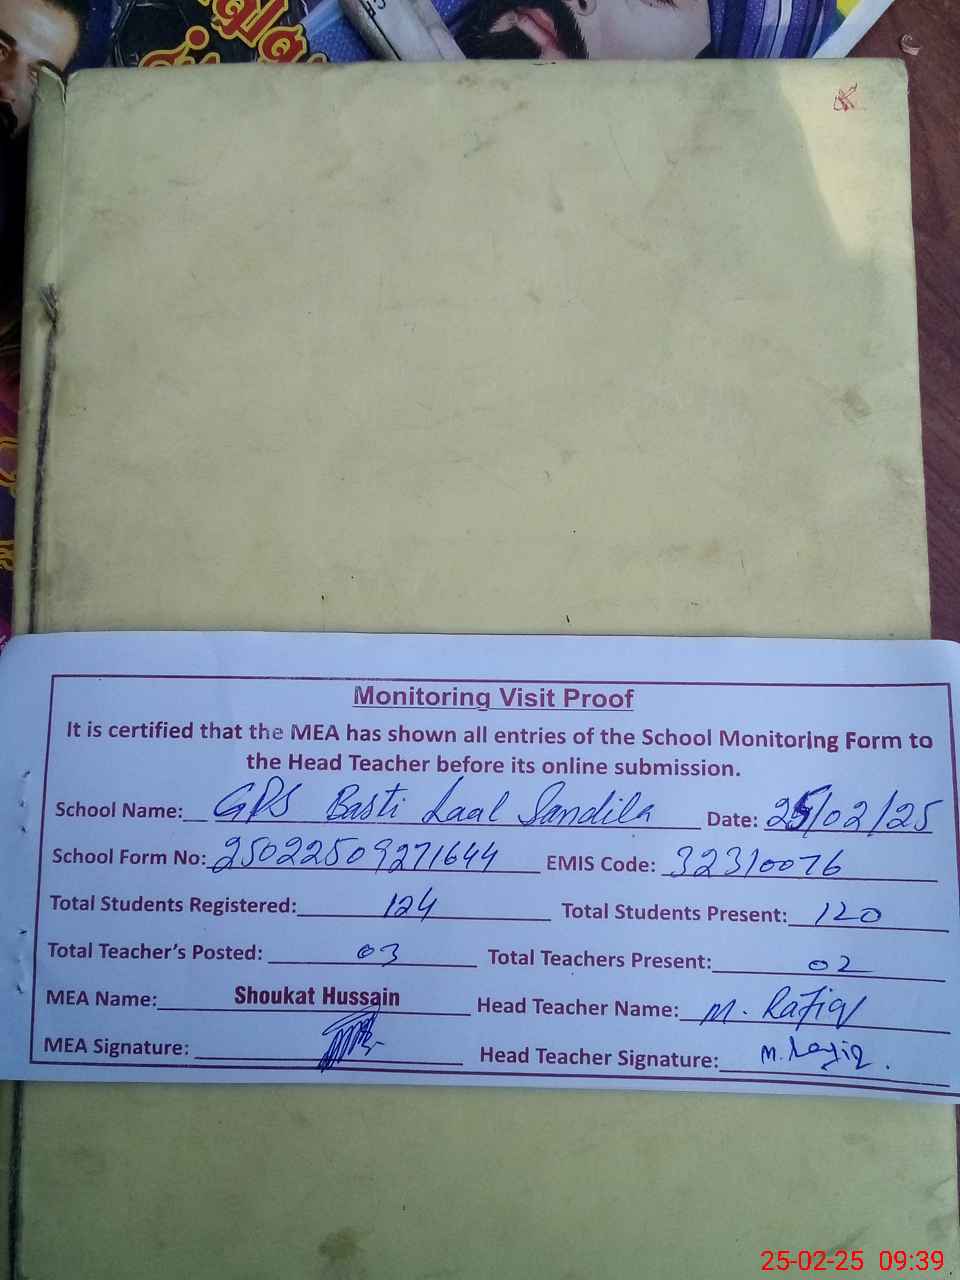 Monitoring Visit Proof
It is certified that the MEA has shown all entries of the School Monitoring Form to
the Head Teacher before its online submission.
School Name: GPS Basti Laal Sandila Date: 25/02/25
School Form No: 25022509271644 EMIS Code: 32310076
Total Students Registered: 124 Total Students Present: 120
Total Teacher's Posted: 03 Total Teachers Present: 02
MEA Name: Shoukat Hussain Head Teacher Name: M. Rafiq
MEA Signature: Head Teacher Signature: M. Rafiq.
25-02-25 09:39